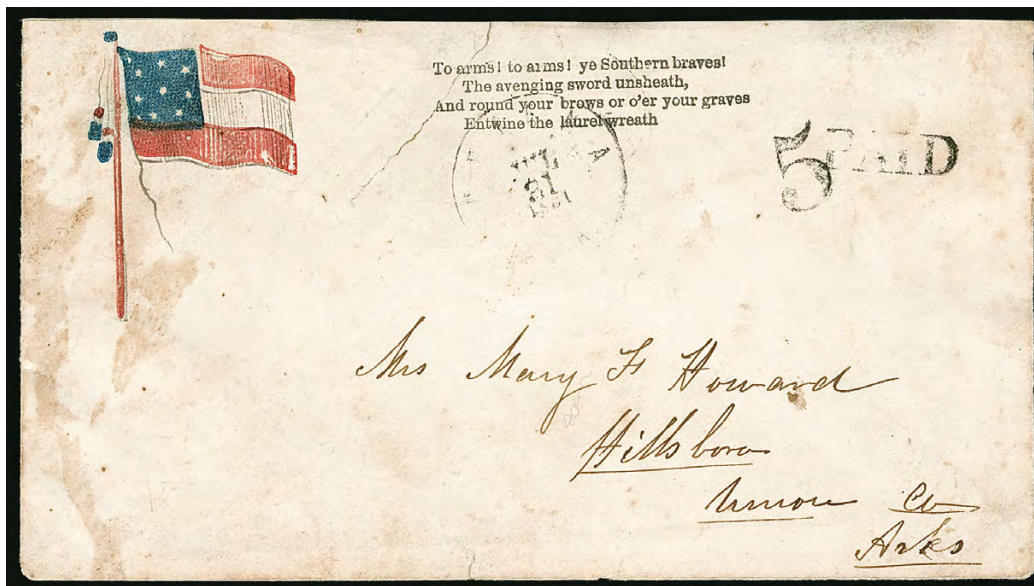 To arms! to arms! ye Southern braves!
The avenging sword unsheath,
And round your brows or o'er your graves
Entwine the laurel wreath
JUL
31
1861
5 PAID
Mrs Mary F Howard
Hillsboro
Union Co
Arks